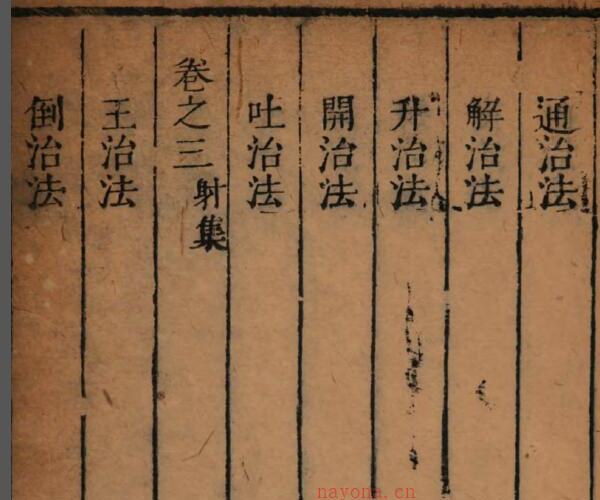 通治法
解治法
升治法
開治法
吐治法
卷之三 射集
王治法
倒治法
nayona.cn